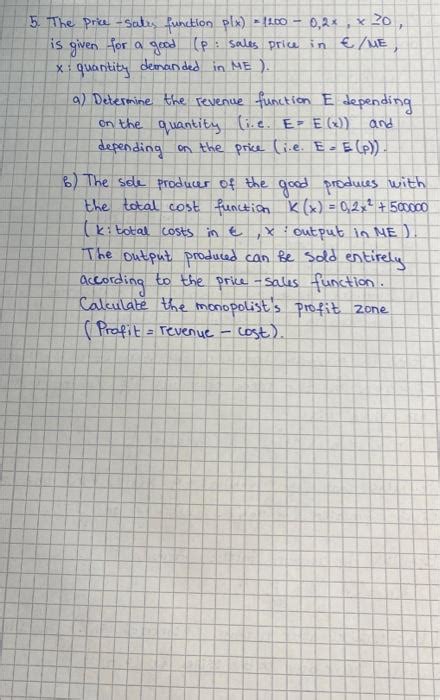 5. The price-sales function p(x) = 1200 - 0,2x, x ≥ 0,
is given for a good (p: sales price in €/ME,
x: quantity demanded in ME).
a) Determine the revenue function E depending
on the quantity (i.e. E = E(x)) and
depending on the price (i.e. E = E(p)).
b) The sole producer of the good produces with
the total cost function K(x) = 0,2x² + 500000
(K: total costs in €, x: output in ME).
The output produced can be sold entirely
according to the price-sales function.
Calculate the monopolist's profit zone
(Profit = revenue - cost).